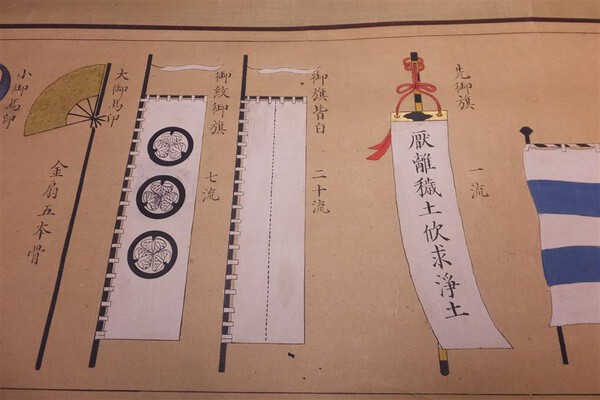 先御旗
一流
厭離穢土欣求淨土
御旗皆白
二十流
御紋御旗
七流
大御馬印
金扇五本骨
小御馬印